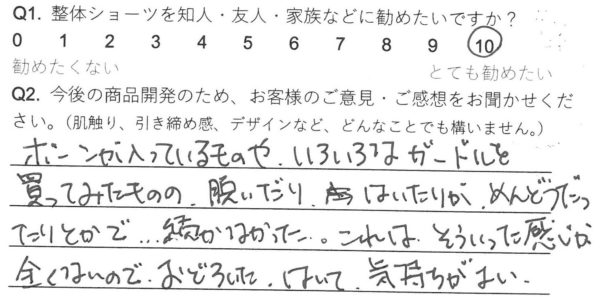 Q1. 整体ショーツを知人・友人・家族などに勧めたいですか？
0 1 2 3 4 5 6 7 8 9 10
勧めたくない とても勧めたい
Q2. 今後の商品開発のため、お客様のご意見・ご感想をお聞かせくだ
さい。（肌触り、引き締め感、デザインなど、どんなことでも構いません。）
ボーンが入っているものや、いろいろなガードルを
買ってみたものの、脱いだり、はいたりが、めんどうだっ
たりとかで…続かなかった…。これは、そういった感じが
全くないので、おどろいた。はいて、気持ちがよい。